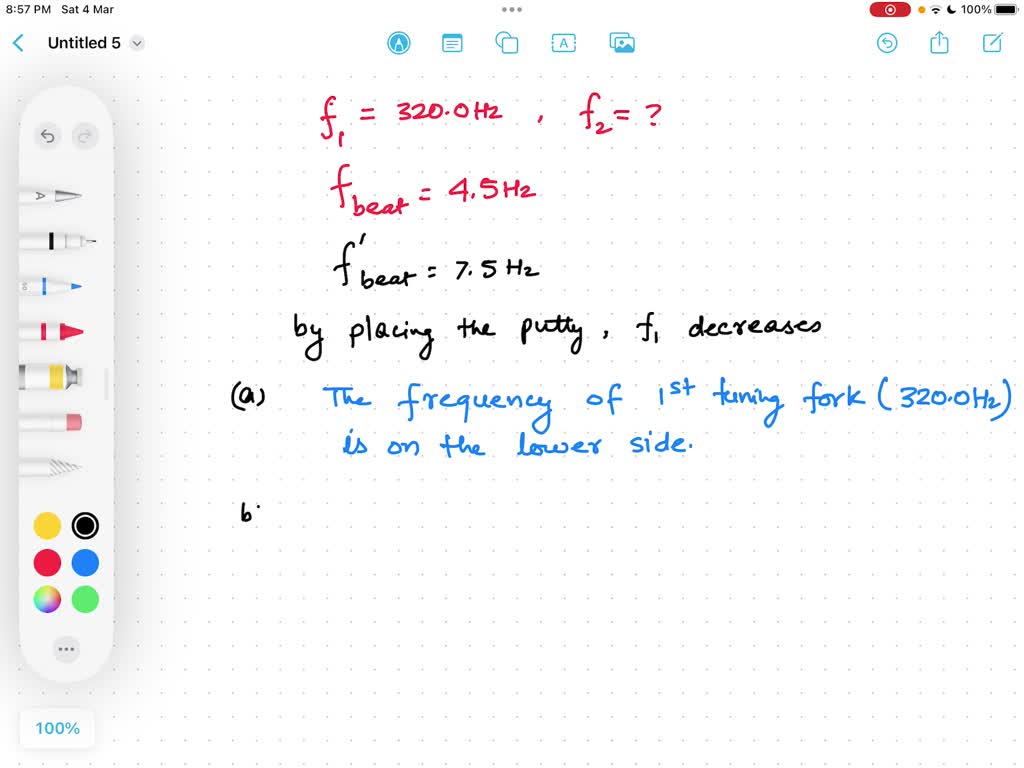 8:57 PM Sat 4 Mar
100%
Untitled 5
A
f₁ = 320.0Hz , f₂ = ?
f beat = 4.5Hz
f' beat = 7.5 Hz
by placing the putty, f₁ decreases
(a) The frequency of 1st tuning fork (320.0Hz)
is on the lower side.
b.
A
50
100%